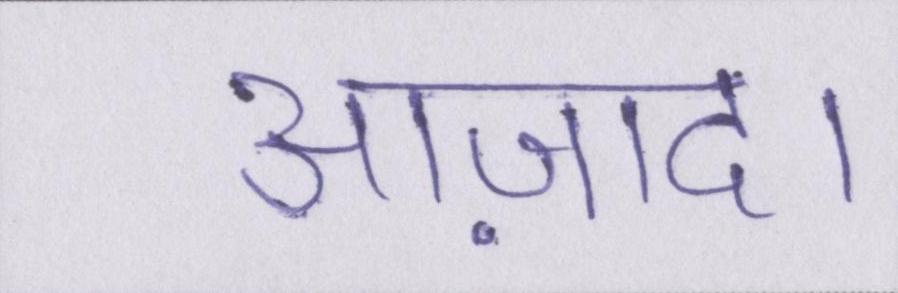 आज़ाद।